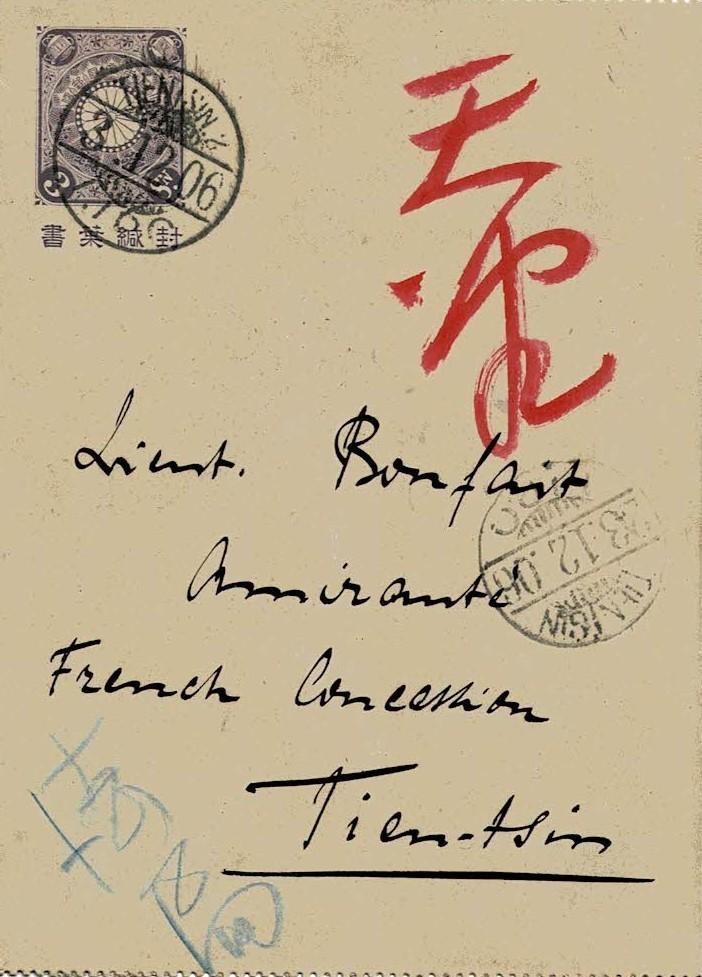 TIENTSIN
12.06
3 Sn
封緘葉書
天
Lieut. Bonfait
Amirante
French Concession
TIENTSIN
12.06
Tien-tsin